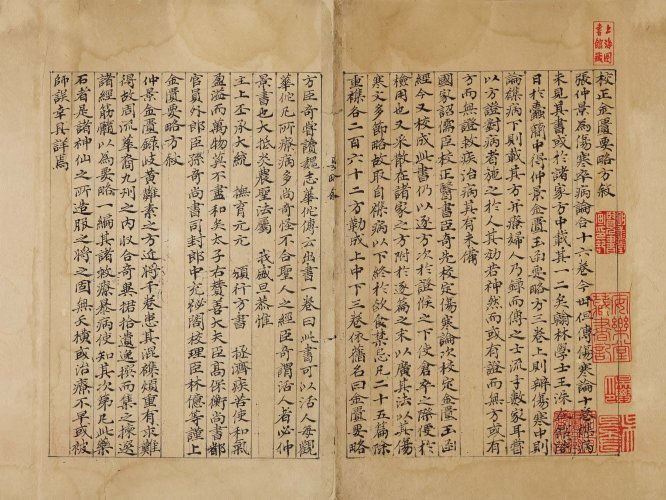 上海圖
書館藏
校正金匱要略方敘
張仲景為傷寒卒病論合十六卷今世但傳傷寒論十卷雜病
未見其書或於諸家方中載其一二矣翰林學士王洙在館閣
日於蠹簡中得仲景金匱玉函要略方三卷上則辯傷寒中則
論雜病下則載其方并療婦人乃錄而傳之士流才數家耳嘗
以方證對病者施之於人其効若神然而或有證而無方或有
方而無證救疾治病其有未備
國家詔儒臣校正醫書臣奇先校定傷寒論次校定金匱玉函
經今又校成此書仍以逐方次於證候之下使倉卒之際便於
檢用也又采散在諸家之方附於逐篇之末以廣其法以其傷
寒文多節略故取自雜病以下終於飲食禁忌凡二十五篇除
重複合二百六十二方勒成上中下三卷依舊名曰金匱要略
方臣奇嘗讀魏志華佗傳云出書一卷曰此書可以活人每觀
華佗凡所療病多尚奇怪不合聖人之經臣奇謂活人者必仲
景書也大抵炎農聖法屬 我盛旦恭惟
主上丕承大統 撫育元元 頒行方書 拯濟疾苦使和氣
盈溢而萬物莫不盡和矣太子右贊善大夫臣高保衡尚書都
官員外郎臣孫奇尚書司封郎中充秘閣校理臣林億等謹上
金匱要略方敘
仲景金匱錄岐黃難素之方近將千卷患其混雜煩重有求難
得故周流華裔九州之內收合奇異捃拾遺逸揀而集之採選
諸經筋髓以為要略一編其諸救療暴病使知其次第凡此藥
石者是諸神仙之所造服之將之固無夭橫或治療不早或被
師誤幸具詳焉